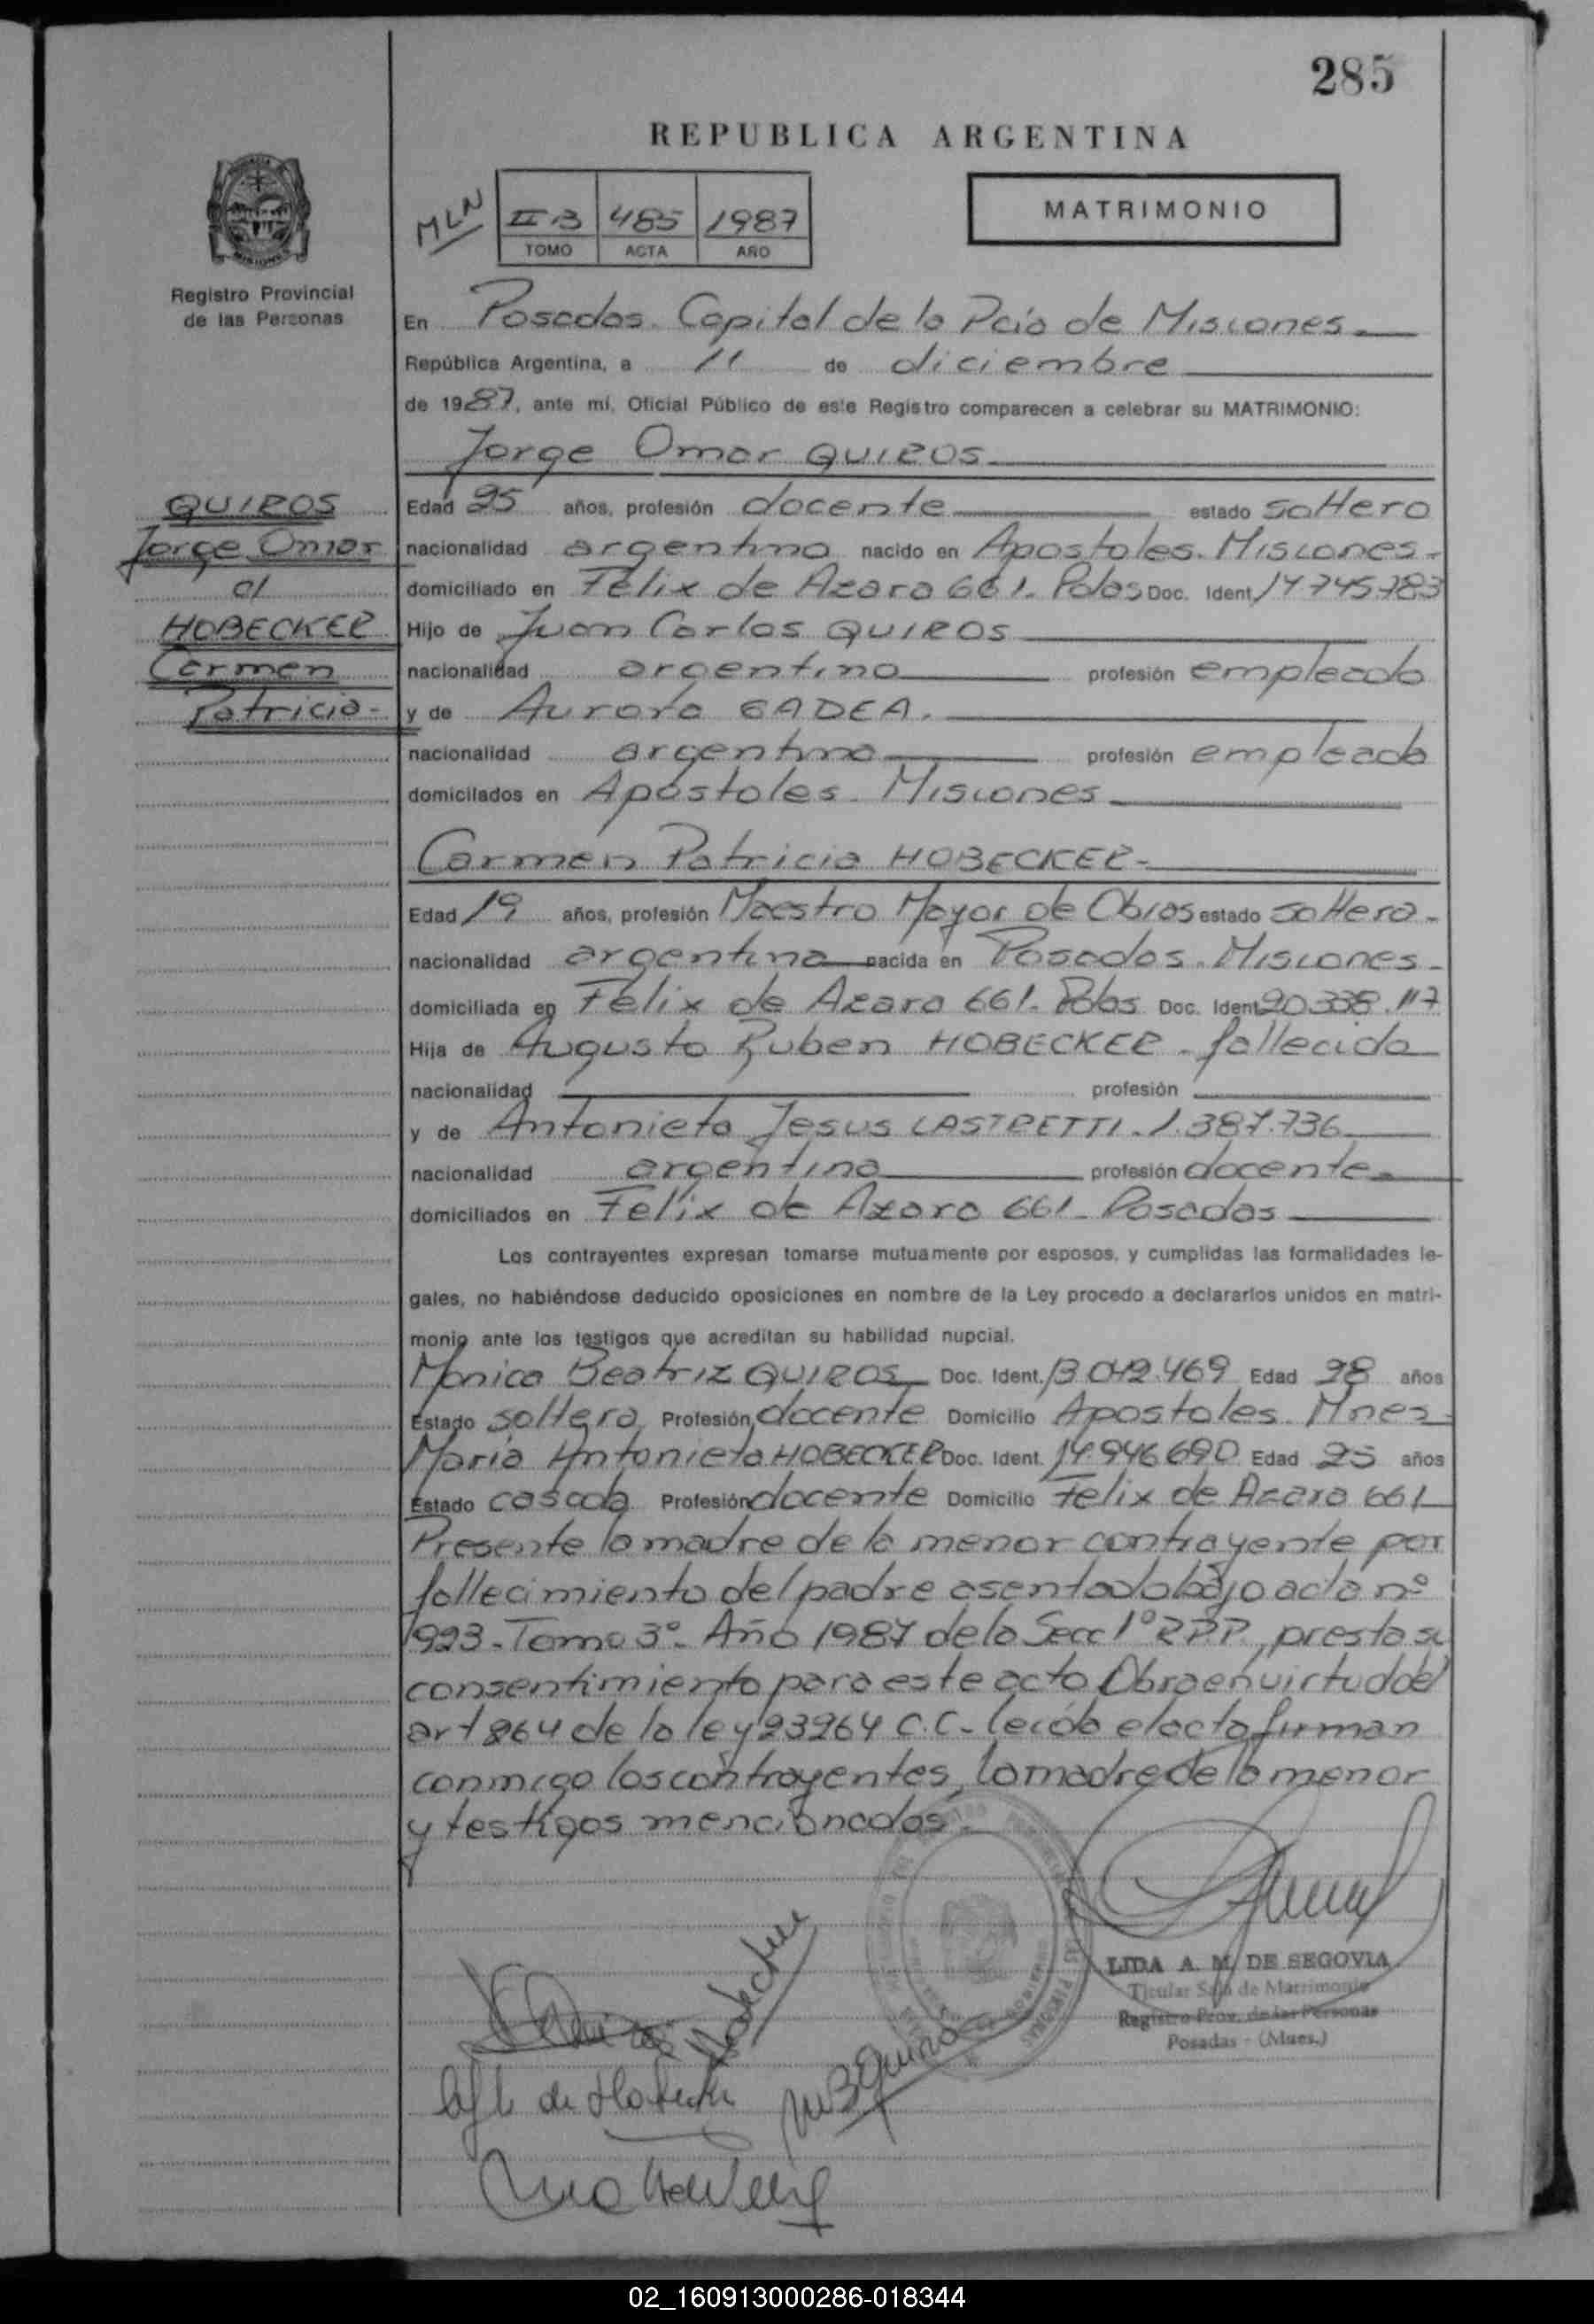 285
REPUBLICA ARGENTINA
MLN
II B 485 1987
TOMO ACTA AÑO
MATRIMONIO
Registro Provincial
de las Personas
En Posadas. Capital de la Pcia de Misiones
República Argentina, a 11 de diciembre
de 1987, ante mí, Oficial Público de este Registro comparecen a celebrar su MATRIMONIO:
Jorge Omar QUIROS
QUIROS
Jorge Omar
c/
HOBECKER
Carmen
Patricia-
Edad 25 años, profesión docente estado soltero
nacionalidad argentino nacido en Apostoles. Misiones-
domiciliado en Felix de Azara 661- Pdas Doc. Ident. 14.745.783
Hijo de Juan Carlos QUIROS
nacionalidad argentino profesión empleado
y de Aurora GADEA.
nacionalidad argentina profesión empleada
domicilados en Apostoles - Misiones
Carmen Patricia HOBECKER-
Edad 19 años, profesión Maestro Mayor de Obras estado soltera-
nacionalidad argentina nacida en Posadas. Misiones-
domiciliada en Felix de Azara 661- Pdas Doc. Ident 20.338.117
Hija de Augusto Ruben HOBECKER - fallecido
nacionalidad profesión
y de Antonieta Jesus LASTRETTI - 1.387.736
nacionalidad argentina profesión docente-
domiciliados en Felix de Azara 661- Posadas
Los contrayentes expresan tomarse mutuamente por esposos, y cumplidas las formalidades le-
gales, no habiéndose deducido oposiciones en nombre de la Ley procedo a declararlos unidos en matri-
monio ante los testigos que acreditan su habilidad nupcial.
Monica Beatriz QUIROS Doc. Ident. 13.042.469 Edad 28 años
Estado soltera Profesión docente Domicilio Apostoles. Mnes-
Maria Antonieta HOBECKER Doc. Ident. 14.946.690 Edad 25 años
Estado casada Profesión docente Domicilio Felix de Azara 661
Presente la madre de la menor contrayente por
fallecimiento del padre asentado bajo acta nº
923- Tomo 3º- Año 1987 de la Secc 1º R.P.P., presta su
consentimiento para este acto Obra en virtud del
art 264 de la ley 23264 C.C- leida el acta firman
conmigo los contrayentes, la madre de la menor
y testigos mencionados-
LIDA A. M. DE SEGOVIA
Titular Sala de Matrimonio
Registro Prov. de las Personas
Posadas - (Mnes.)
MBQuiros
02_160913000286-018344